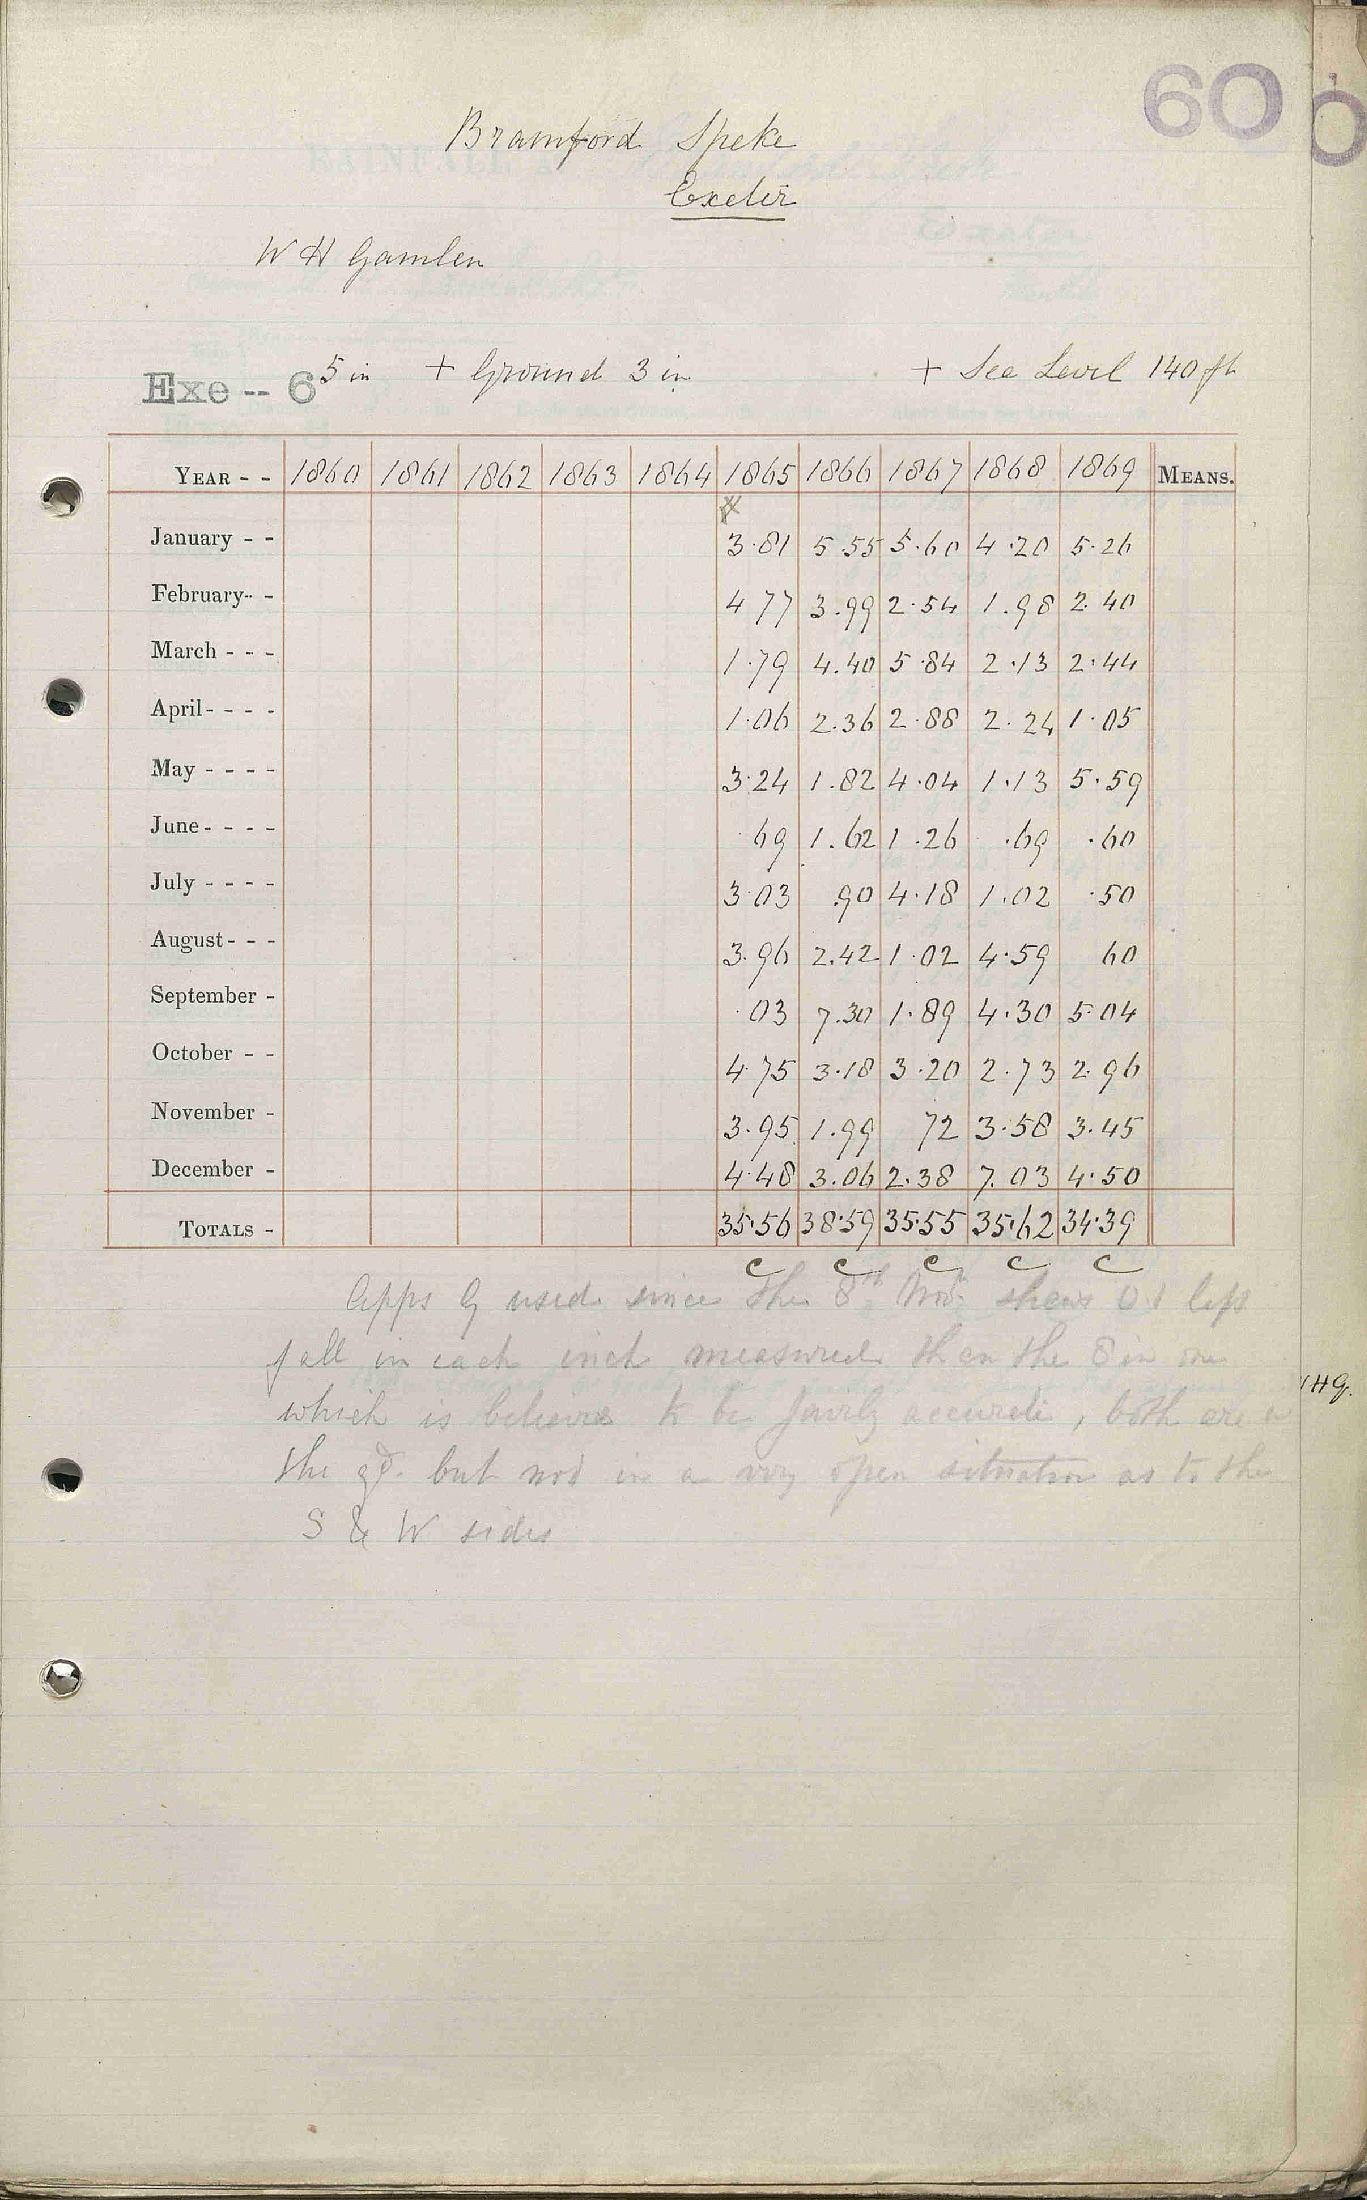 60
Bramford Speke
Exeter
W H Gamlen
Exe -- 6 5 in + Ground 3 in + Sea Level 140 ft
YEAR - - 1860 1861 1862 1863 1864 1865 1866 1867 1868 1869 MEANS.
January - - 3.81 5.55 5.60 4.20 5.26
February - - 4 77 3.99 2.54 1.98 2.40
March - - - 1.79 4.40 5.84 2.13 2.44
April - - - - 1.06 2.36 2.88 2.24 1.05
May - - - - 3.24 1.82 4.04 1.13 5.59
June - - - - .69 1.62 1.26 .69 .60
July - - - - 3.03 .90 4.18 1.02 .50
August - - - 3.96 2.42 1.02 4.59 60
September - .03 7.30 1.89 4.30 5.04
October - - 4.75 3.18 3.20 2.73 2.96
November - 3.95 1.99 72 3.58 3.45
December - 4.48 3.06 2.38 7.03 4.50
TOTALS - 35.56 38.59 35.55 35.62 34.39
c c c c c
Apps G used since the 8th Novr shews 0.1 less
fall in each inch measured than the 8 in one
which is believed to be fairly accurate, both are
the gd. but not in a very open situation as to the
S & W sides